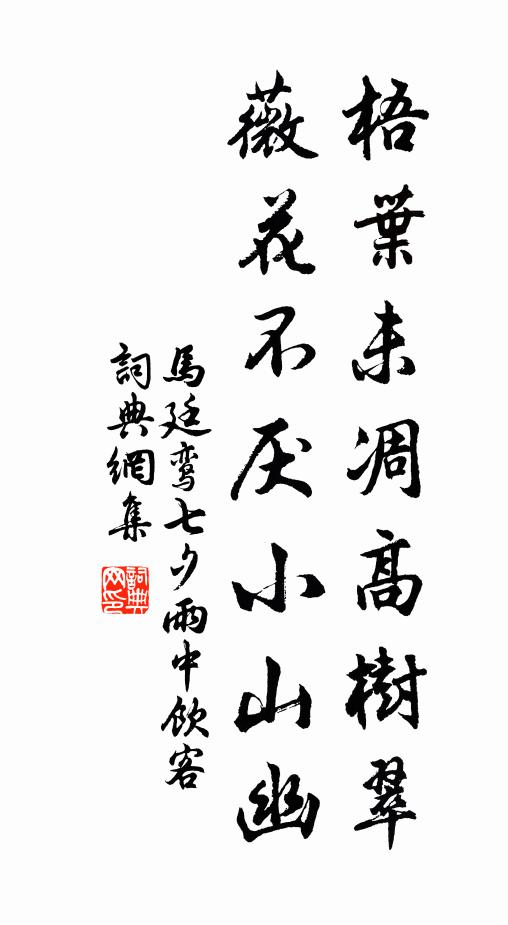 梧葉未凋高樹翠
薇花不厌小山幽
馬廷鸾七夕雨中飲客
詞典網集
詞典网印